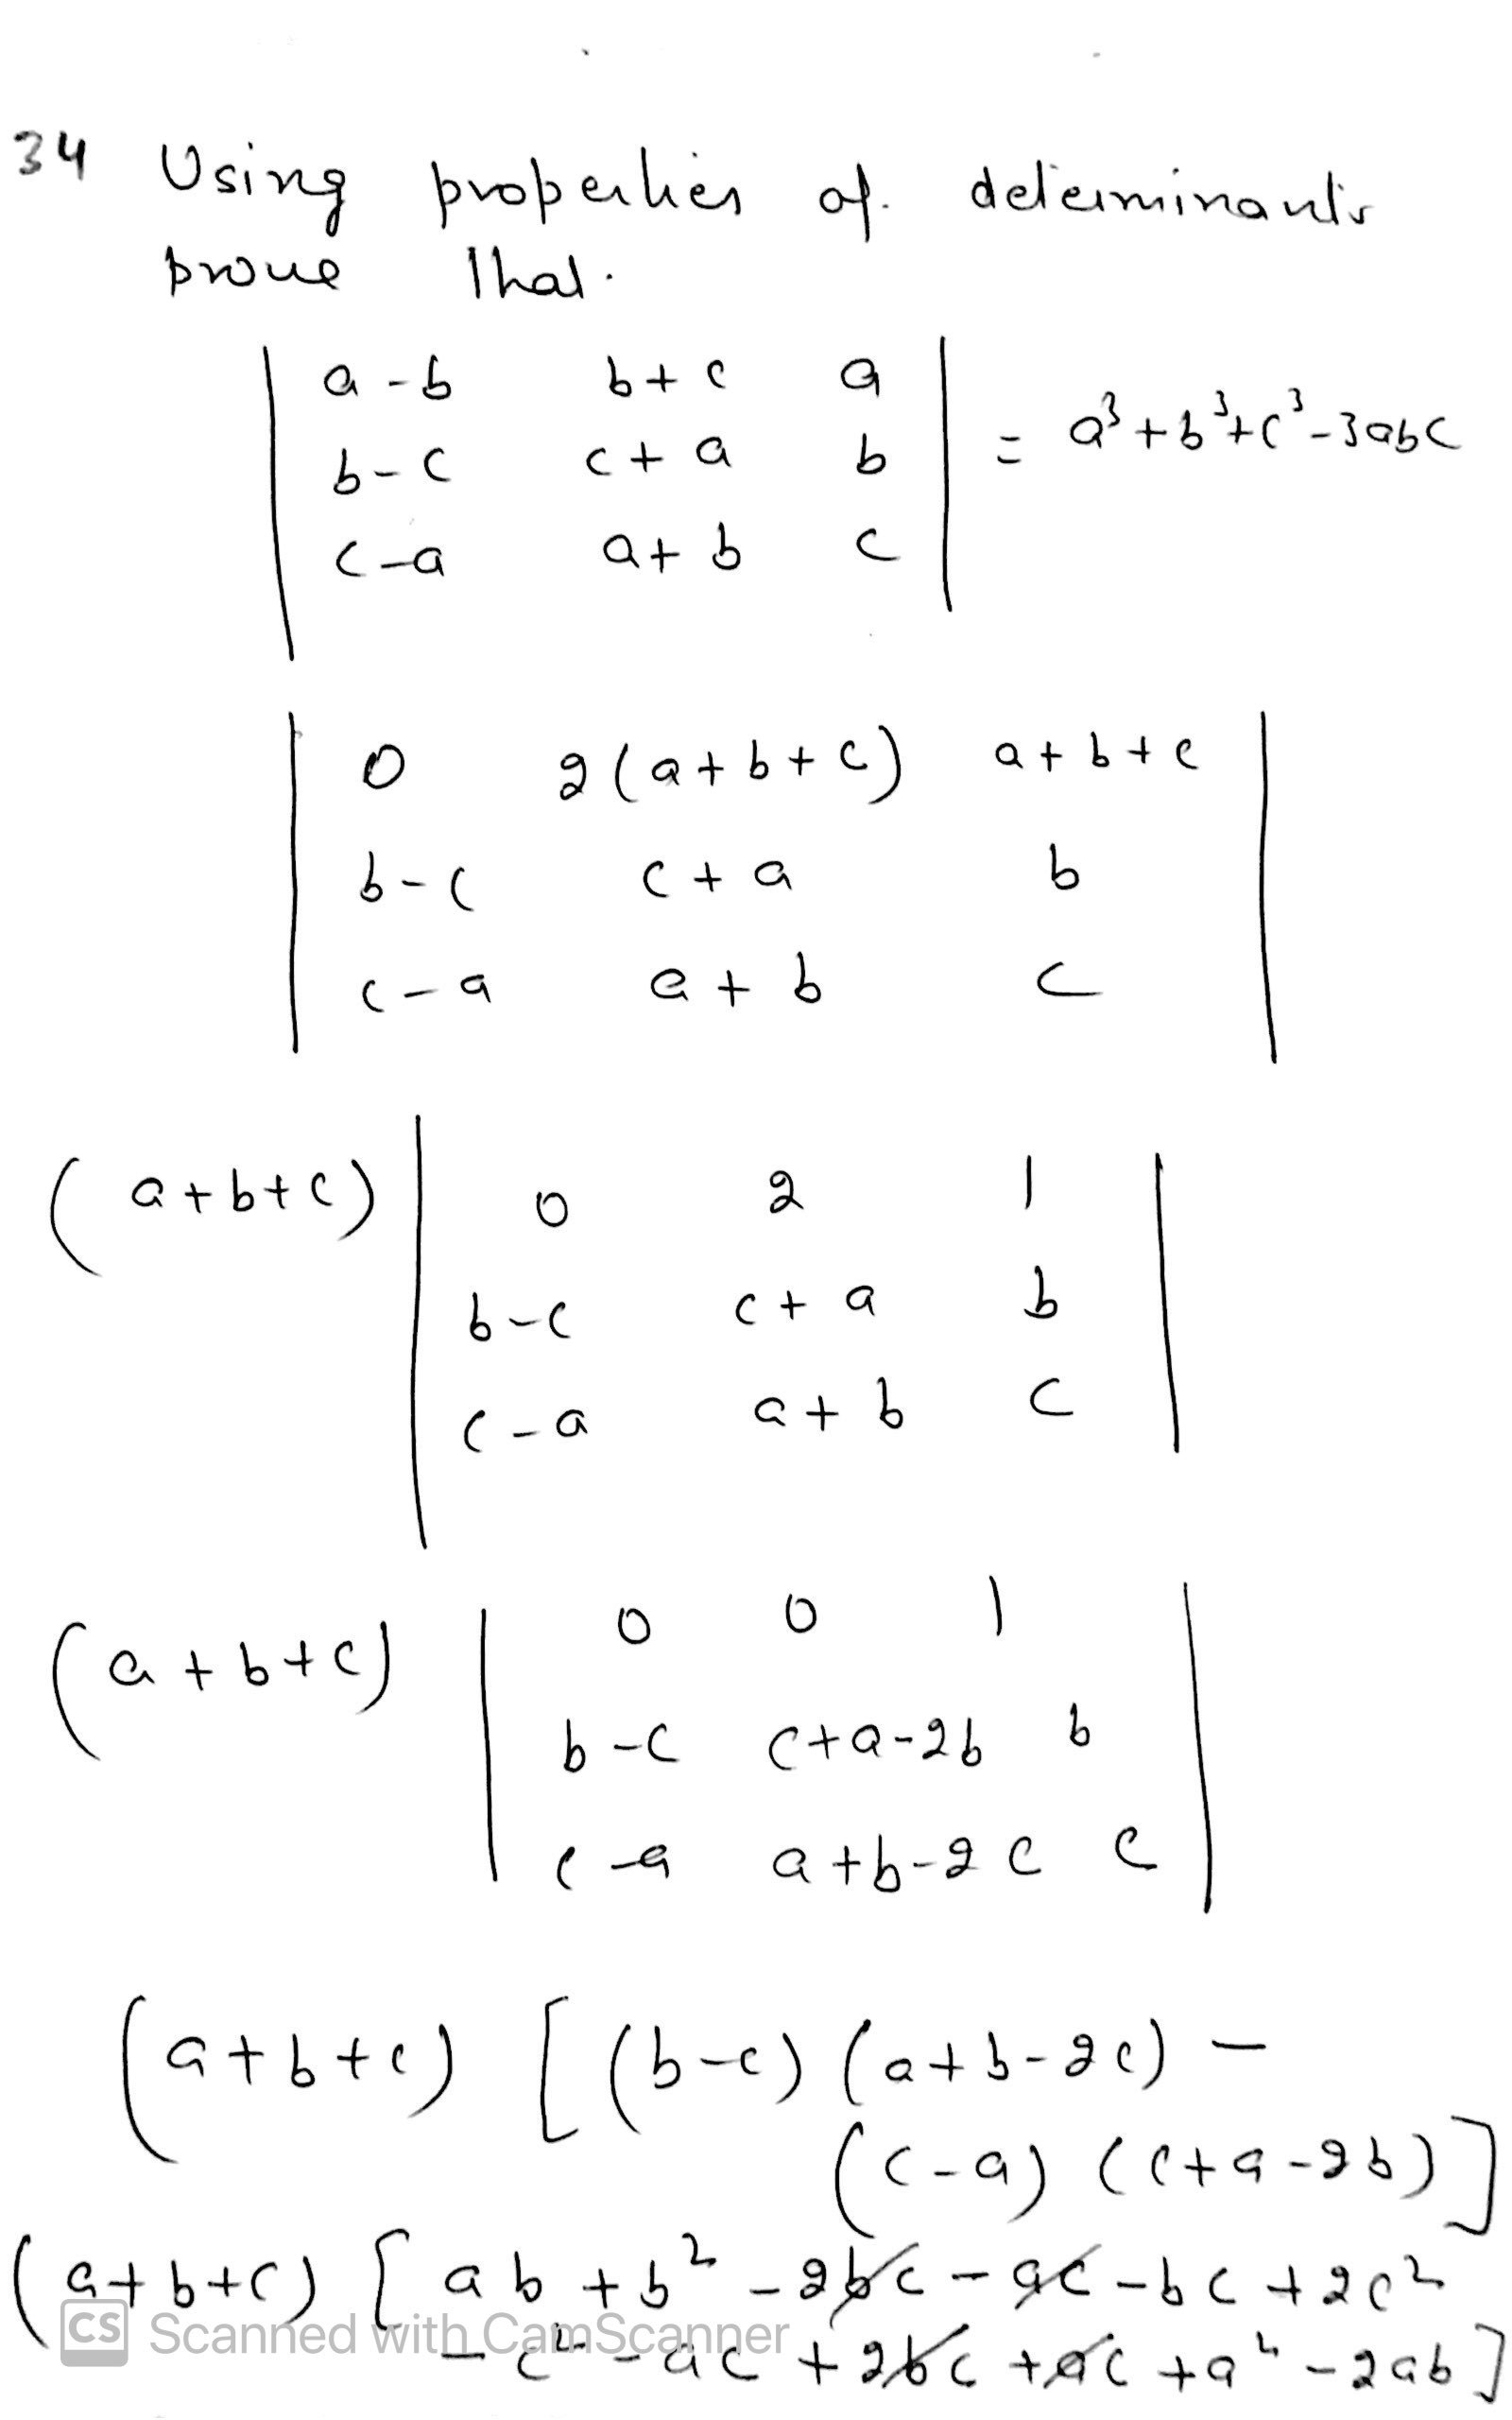 34 Using properties of determinants
prove that.
| a-b b+c a |
| b-c c+a b | = a³+b³+c³-3abc
| c-a a+b c |
| 0 2(a+b+c) a+b+c |
| b-c c+a b |
| c-a a+b c |
(a+b+c) | 0 2 1 |
| b-c c+a b |
| c-a a+b c |
(a+b+c) | 0 0 1 |
| b-c c+a-2b b |
| c-a a+b-2c c |
(a+b+c) [(b-c)(a+b-2c) -
(c-a)(c+a-2b)]
(a+b+c) [ab+b²-2bc-ac-bc+2c²
-c²-ac+2bc+ac+a²-2ab]
CS Scanned with CamScanner